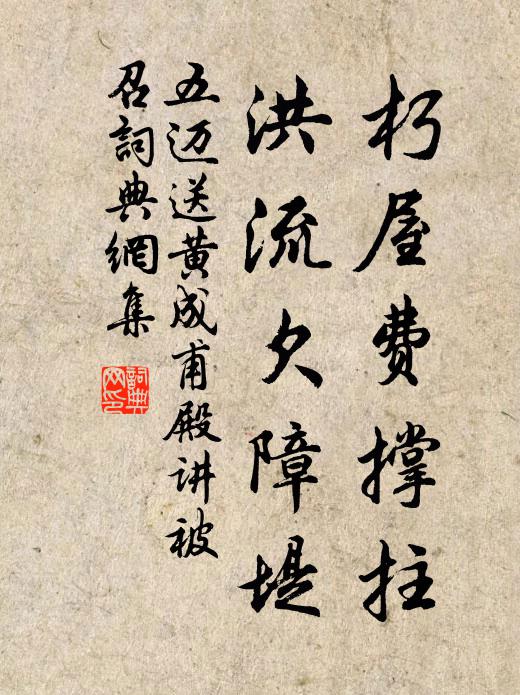 朽屋费撑拄
洪流欠障堤
五迈送黄成甫殿讲被
召詞典網集
詞典網印